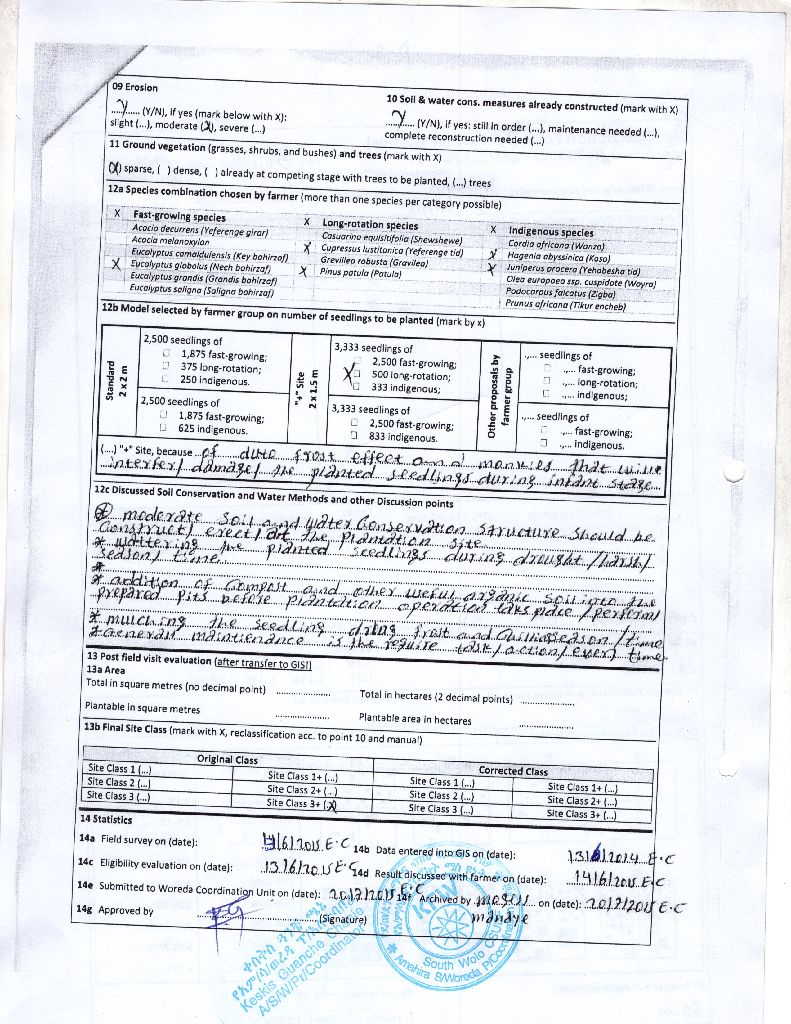 09 Erosion
Y (Y/N), If yes (mark below with X):
slight (...), moderate (X), severe (...)
10 Soil & water cons. measures already constructed (mark with X)
Y (Y/N), if yes: still in order (...), maintenance needed (...),
complete reconstruction needed (...)
11 Ground vegetation (grasses, shrubs, and bushes) and trees (mark with X)
(X) sparse, ( ) dense, ( ) already at competing stage with trees to be planted, (...) trees
12a Species combination chosen by farmer (more than one species per category possible)
X Fast-growing species
Acacia decurrens (Yeferenge girar)
Acacia melanoxylon
Eucalyptus camaldulensis (Key bahirzaf)
X Eucalyptus globolus (Nech bahirzaf)
Eucalyptus grandis (Grandis bahirzaf)
Eucalyptus saligna (Saligna bahirzaf)
X Long-rotation species
Casuarina equisitifolia (Shewshewe)
X Cupressus lustitanica (Yeferenge tid)
Grevillea robusta (Gravilea)
X Pinus patula (Patula)
X Indigenous species
Cordia africana (Wanza)
X Hagenia abyssinica (Koso)
X Juniperus procera (Yehabesha tid)
Olea europaea ssp. cuspidote (Woyra)
Podocarpus falcatus (Zigba)
Prunus africana (Tikur encheb)
12b Model selected by farmer group on number of seedlings to be planted (mark by x)
Standard
2 x 2 m
2,500 seedlings of
1,875 fast-growing;
375 long-rotation;
250 indigenous.
2,500 seedlings of
1,875 fast-growing;
625 indigenous.
"+" Site
2 x 1.5 m
3,333 seedlings of
2,500 fast-growing;
X 500 long-rotation;
333 indigenous;
3,333 seedlings of
2,500 fast-growing;
833 indigenous.
Other proposals by
farmer group
.,... seedlings of
.,... fast-growing;
.,... long-rotation;
.,... indigenous;
.,... seedlings of
.,... fast-growing;
.,... indigenous.
(...) "+" Site, because of duto frost effect and monkies that wine
interfer/ damage/ the planted seedlings during infant stage
12c Discussed Soil Conservation and Water Methods and other Discussion points
* moderate Soil and Water Conservation Structure should be
Construct/ erect/ at the plantation site
* wattering the planted seedlings during draught /harsh/
season/ time
*
* addition of Compost and other useful organic soil into the
prepared pits before plantation operation taks place /perform/
* mulching the seedling dring frost and season /time
* General maintienance is the require task/action/every time
13 Post field visit evaluation (after transfer to GIS!)
13a Area
Total in square metres (no decimal point) ............
Total in hectares (2 decimal points) ............
Plantable in square metres ............
Plantable area in hectares ............
13b Final Site Class (mark with X, reclassification acc. to point 10 and manual)
Original Class
Corrected Class
Site Class 1 (...) Site Class 1+ (...) Site Class 1 (...) Site Class 1+ (...)
Site Class 2 (...) Site Class 2+ (...) Site Class 2 (...) Site Class 2+ (...)
Site Class 3 (...) Site Class 3+ (X) Site Class 3 (...) Site Class 3+ (...)
14 Statistics
14a Field survey on (date): /6/2015 E.C
14b Data entered into GIS on (date): 13/6/2014 E.C
14c Eligibility evaluation on (date): 13/6/2015 E.C
14d Result discussed with farmer on (date): 14/6/2015 E.C
14e Submitted to Woreda Coordination Unit on (date): 20/7/2015 E.C
14f Archived by on (date): 20/7/2015 E.C
14g Approved by (Signature)
Keskis Guanche
A/S/W/P/Coordinator
KFW
South Wolo
Amahira S/Woreda P/Coordinator